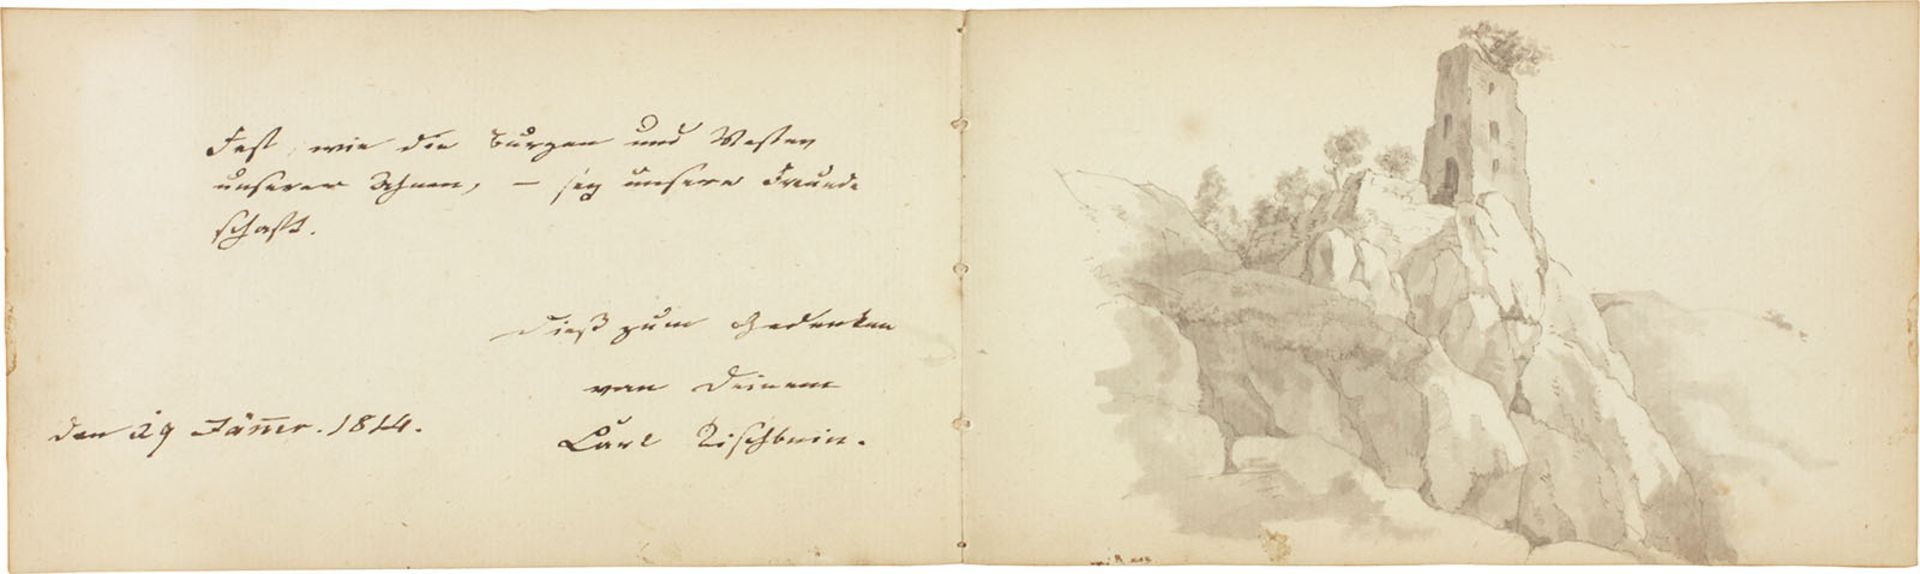 Fest, wie die Burgen und Vesten
unserer Ahnen, – sey unsere Freund-
schaft.
Dieß zum Gedenken
von Deinem
Carl Tischbein.
den 29 Jänner. 1814.